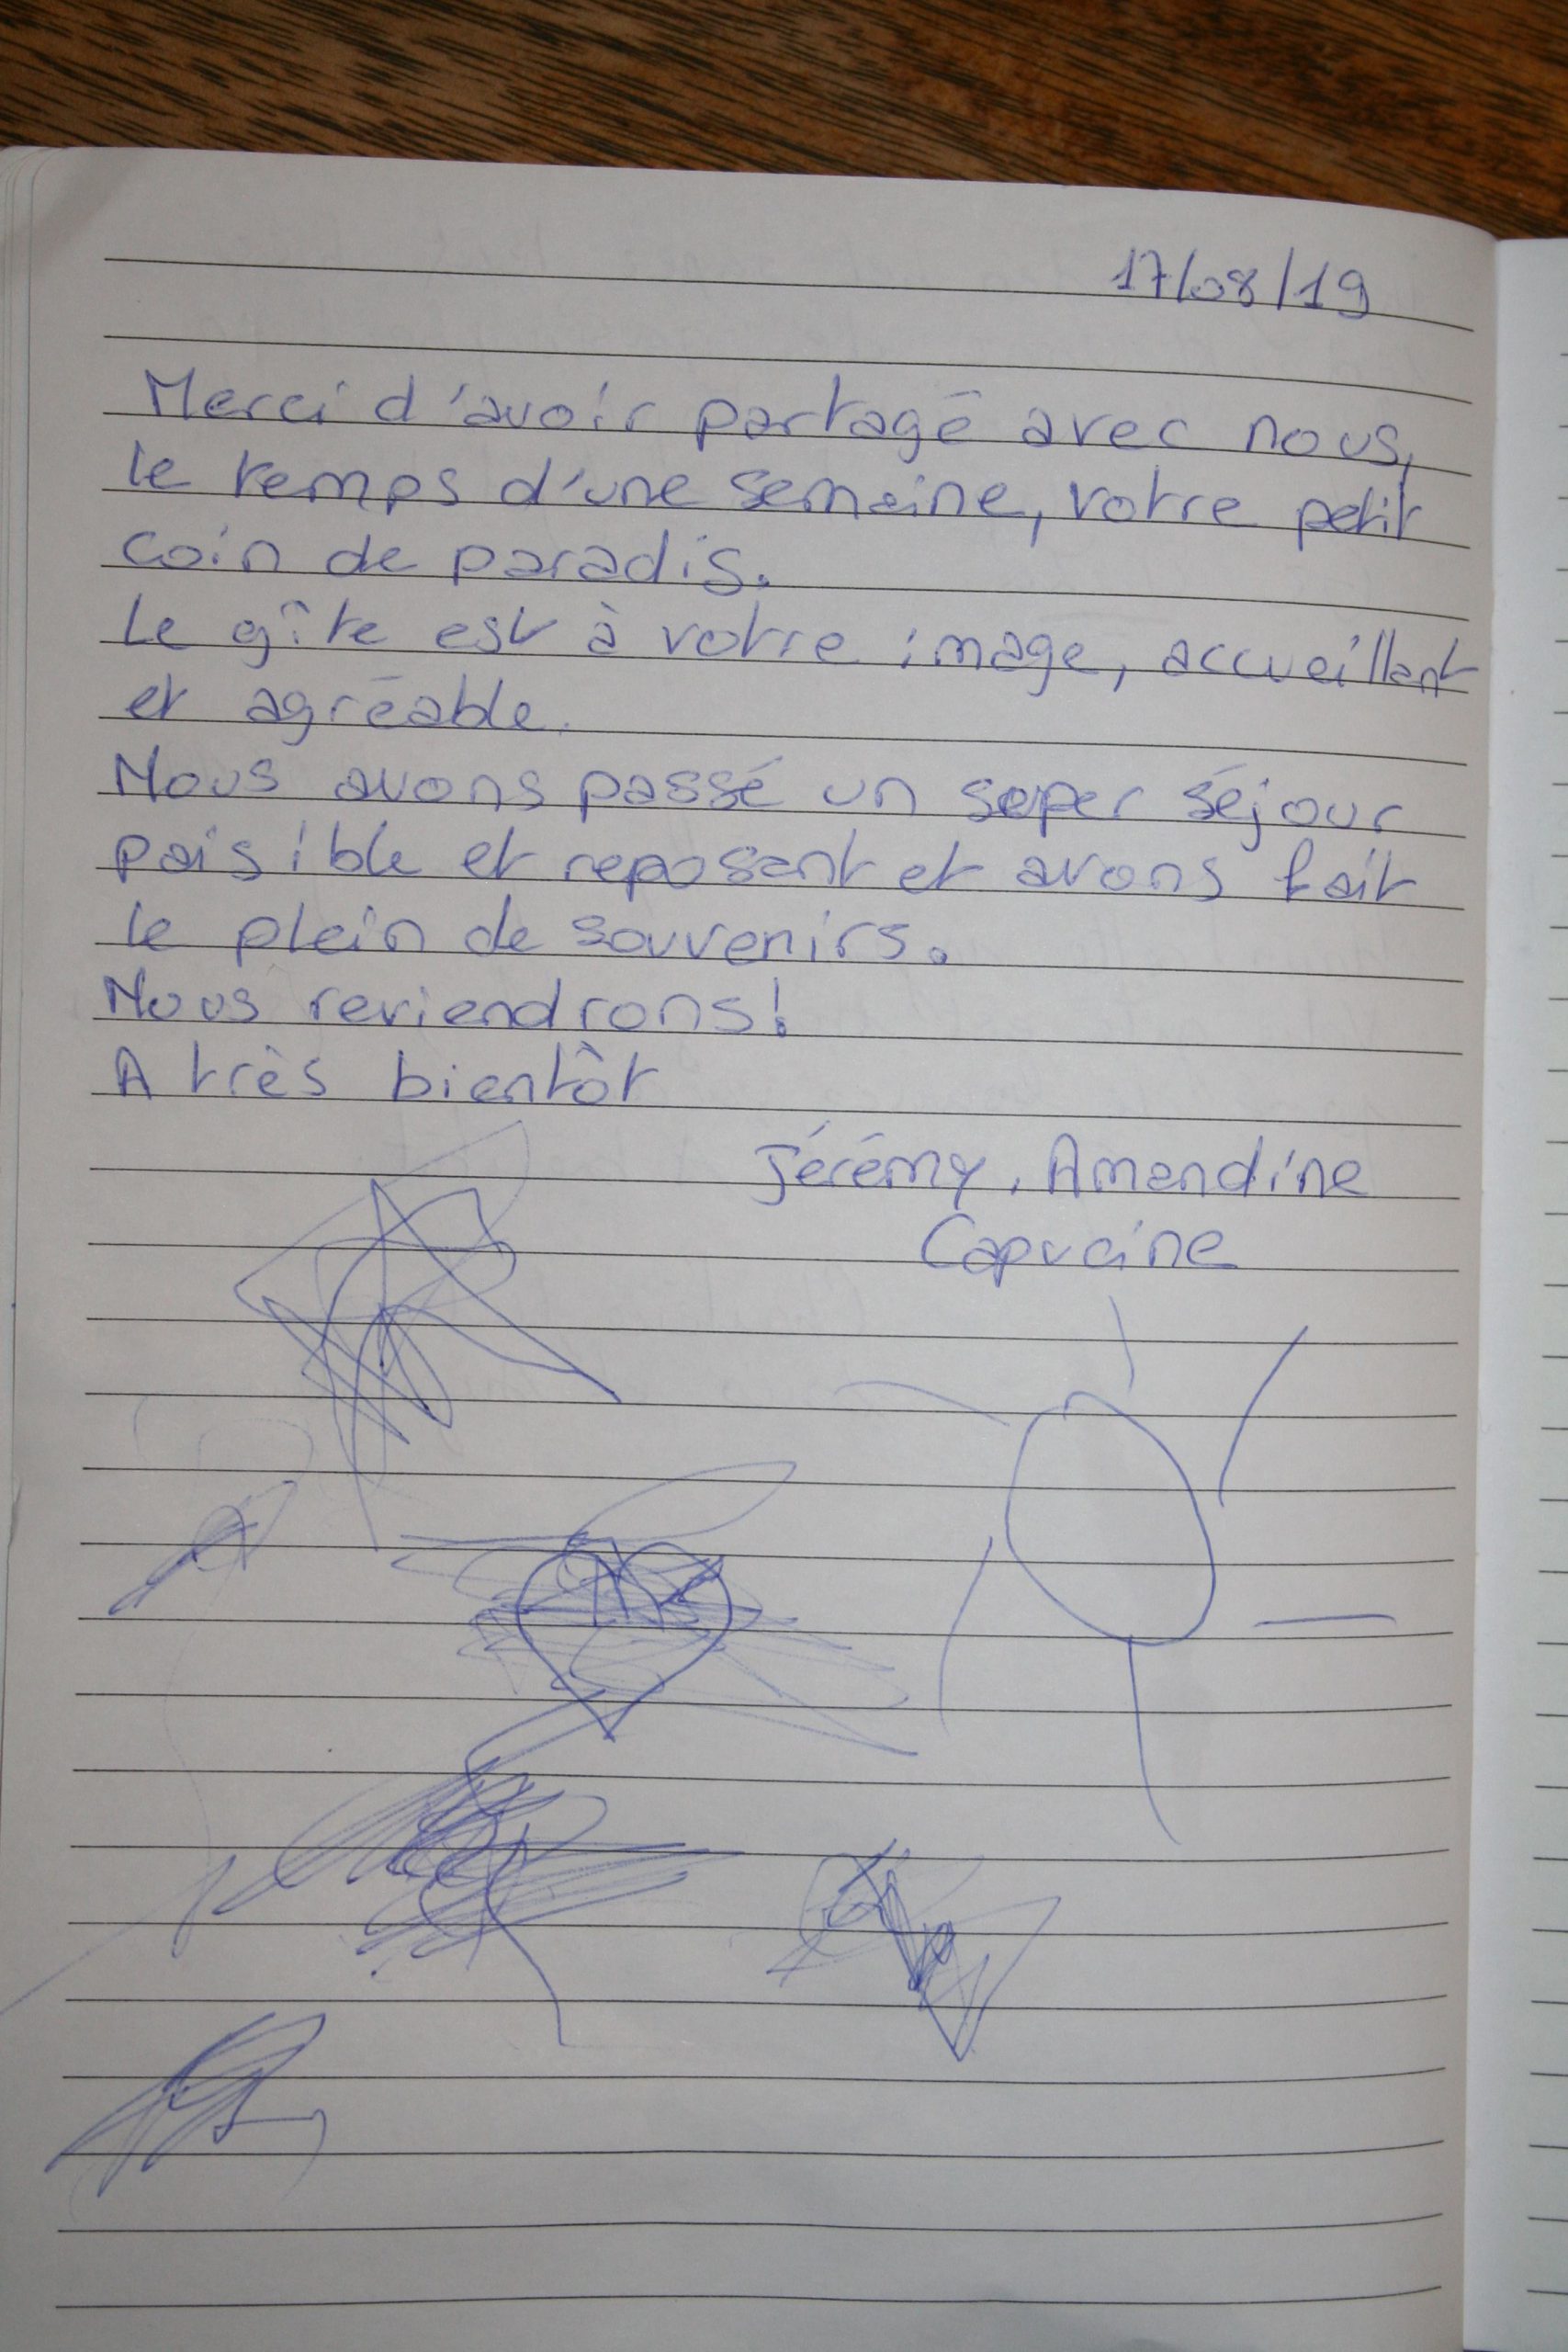 17/08/19
Merci d'avoir partagé avec nous,
le temps d'une semaine, votre petit
coin de paradis.
Le gîte est à votre image, accueillant
et agréable.
Nous avons passé un super séjour
paisible et reposant et avons fait
le plein de souvenirs.
Nous reviendrons!
A très bientôt
Jérémy, Amandine
Capucine